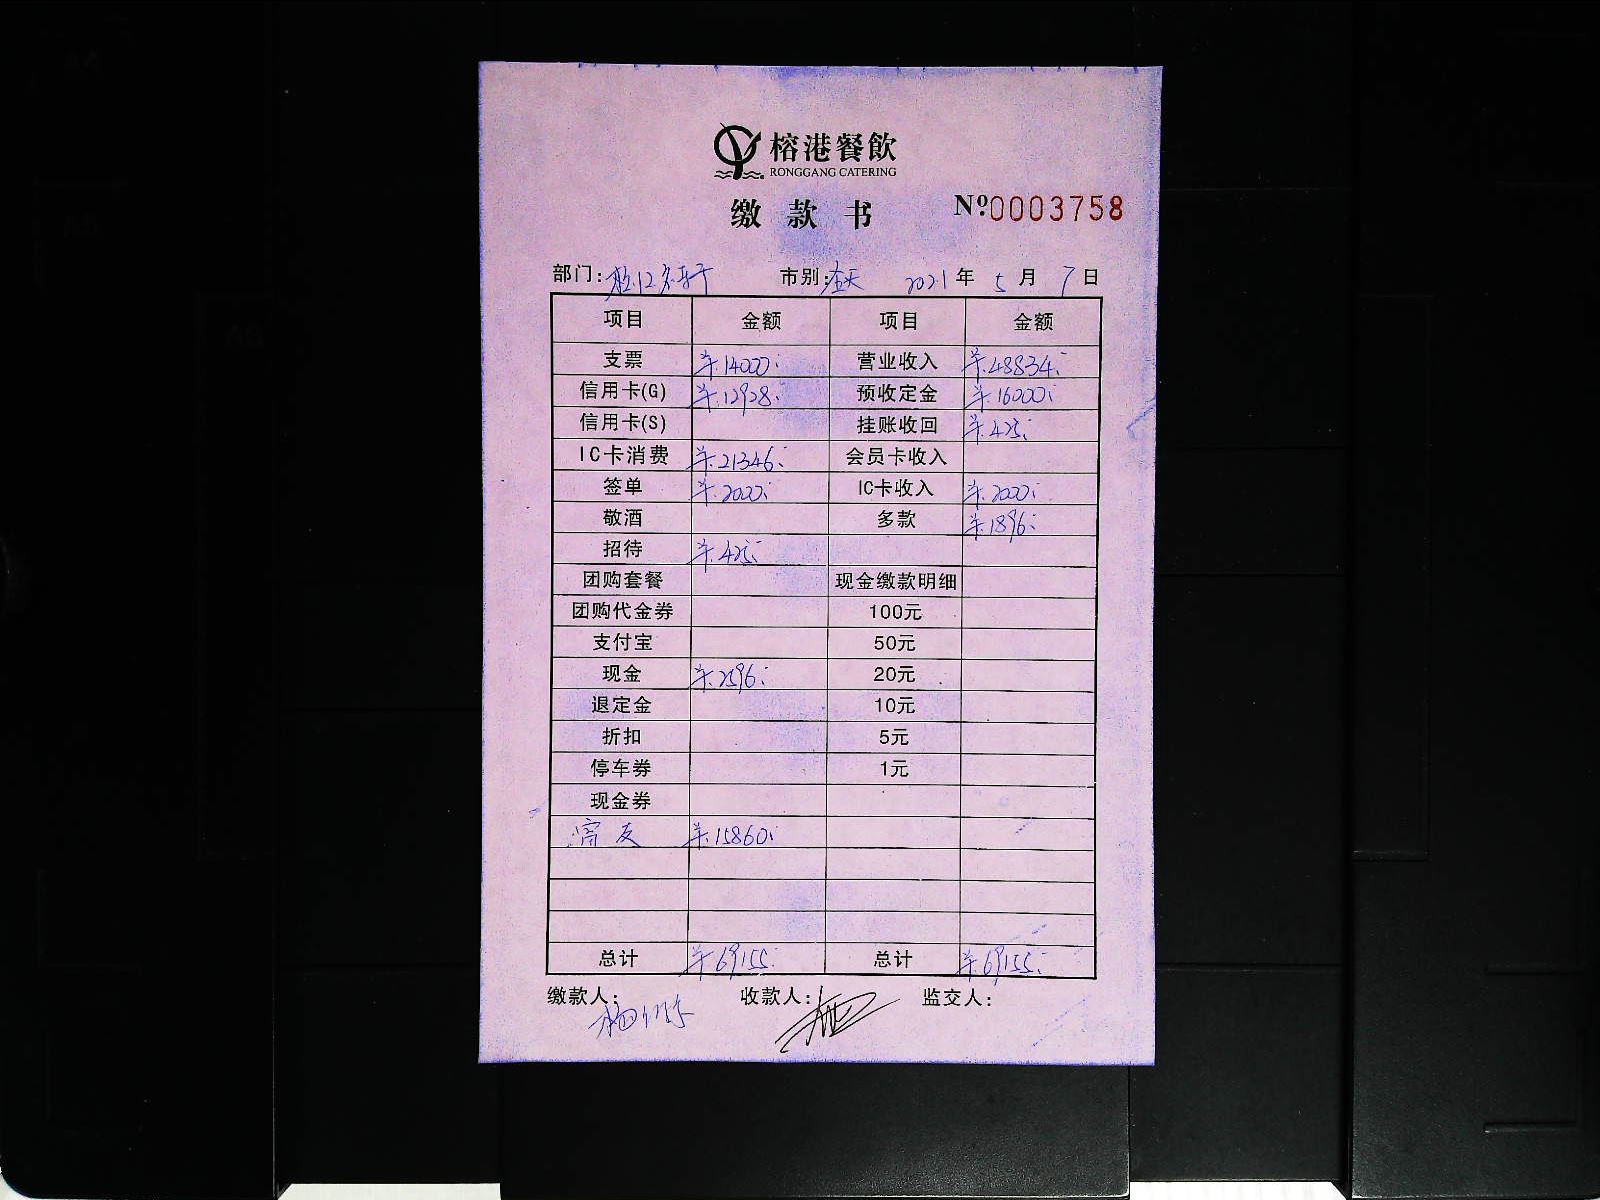 榕港餐飲
RONGGANG CATERING
缴款书 Nº:0003758
部门: 市别:全天 2021年5月7日
项目 金额 项目 金额
支票 ¥14000: 营业收入 ¥48834:
信用卡(G) ¥12928: 预收定金 ¥16000:
信用卡(S) 挂账收回 ¥425:
IC卡消费 ¥21346: 会员卡收入
签单 ¥2000: IC卡收入 ¥2000:
敬酒 多款 ¥1896:
招待 ¥425:
团购套餐 现金缴款明细
团购代金券 100元
支付宝 50元
现金 ¥2596: 20元
退定金 10元
折扣 5元
停车券 1元
现金券
富友 ¥15860:
总计 ¥69155: 总计 ¥69155:
缴款人: 收款人: 监交人: